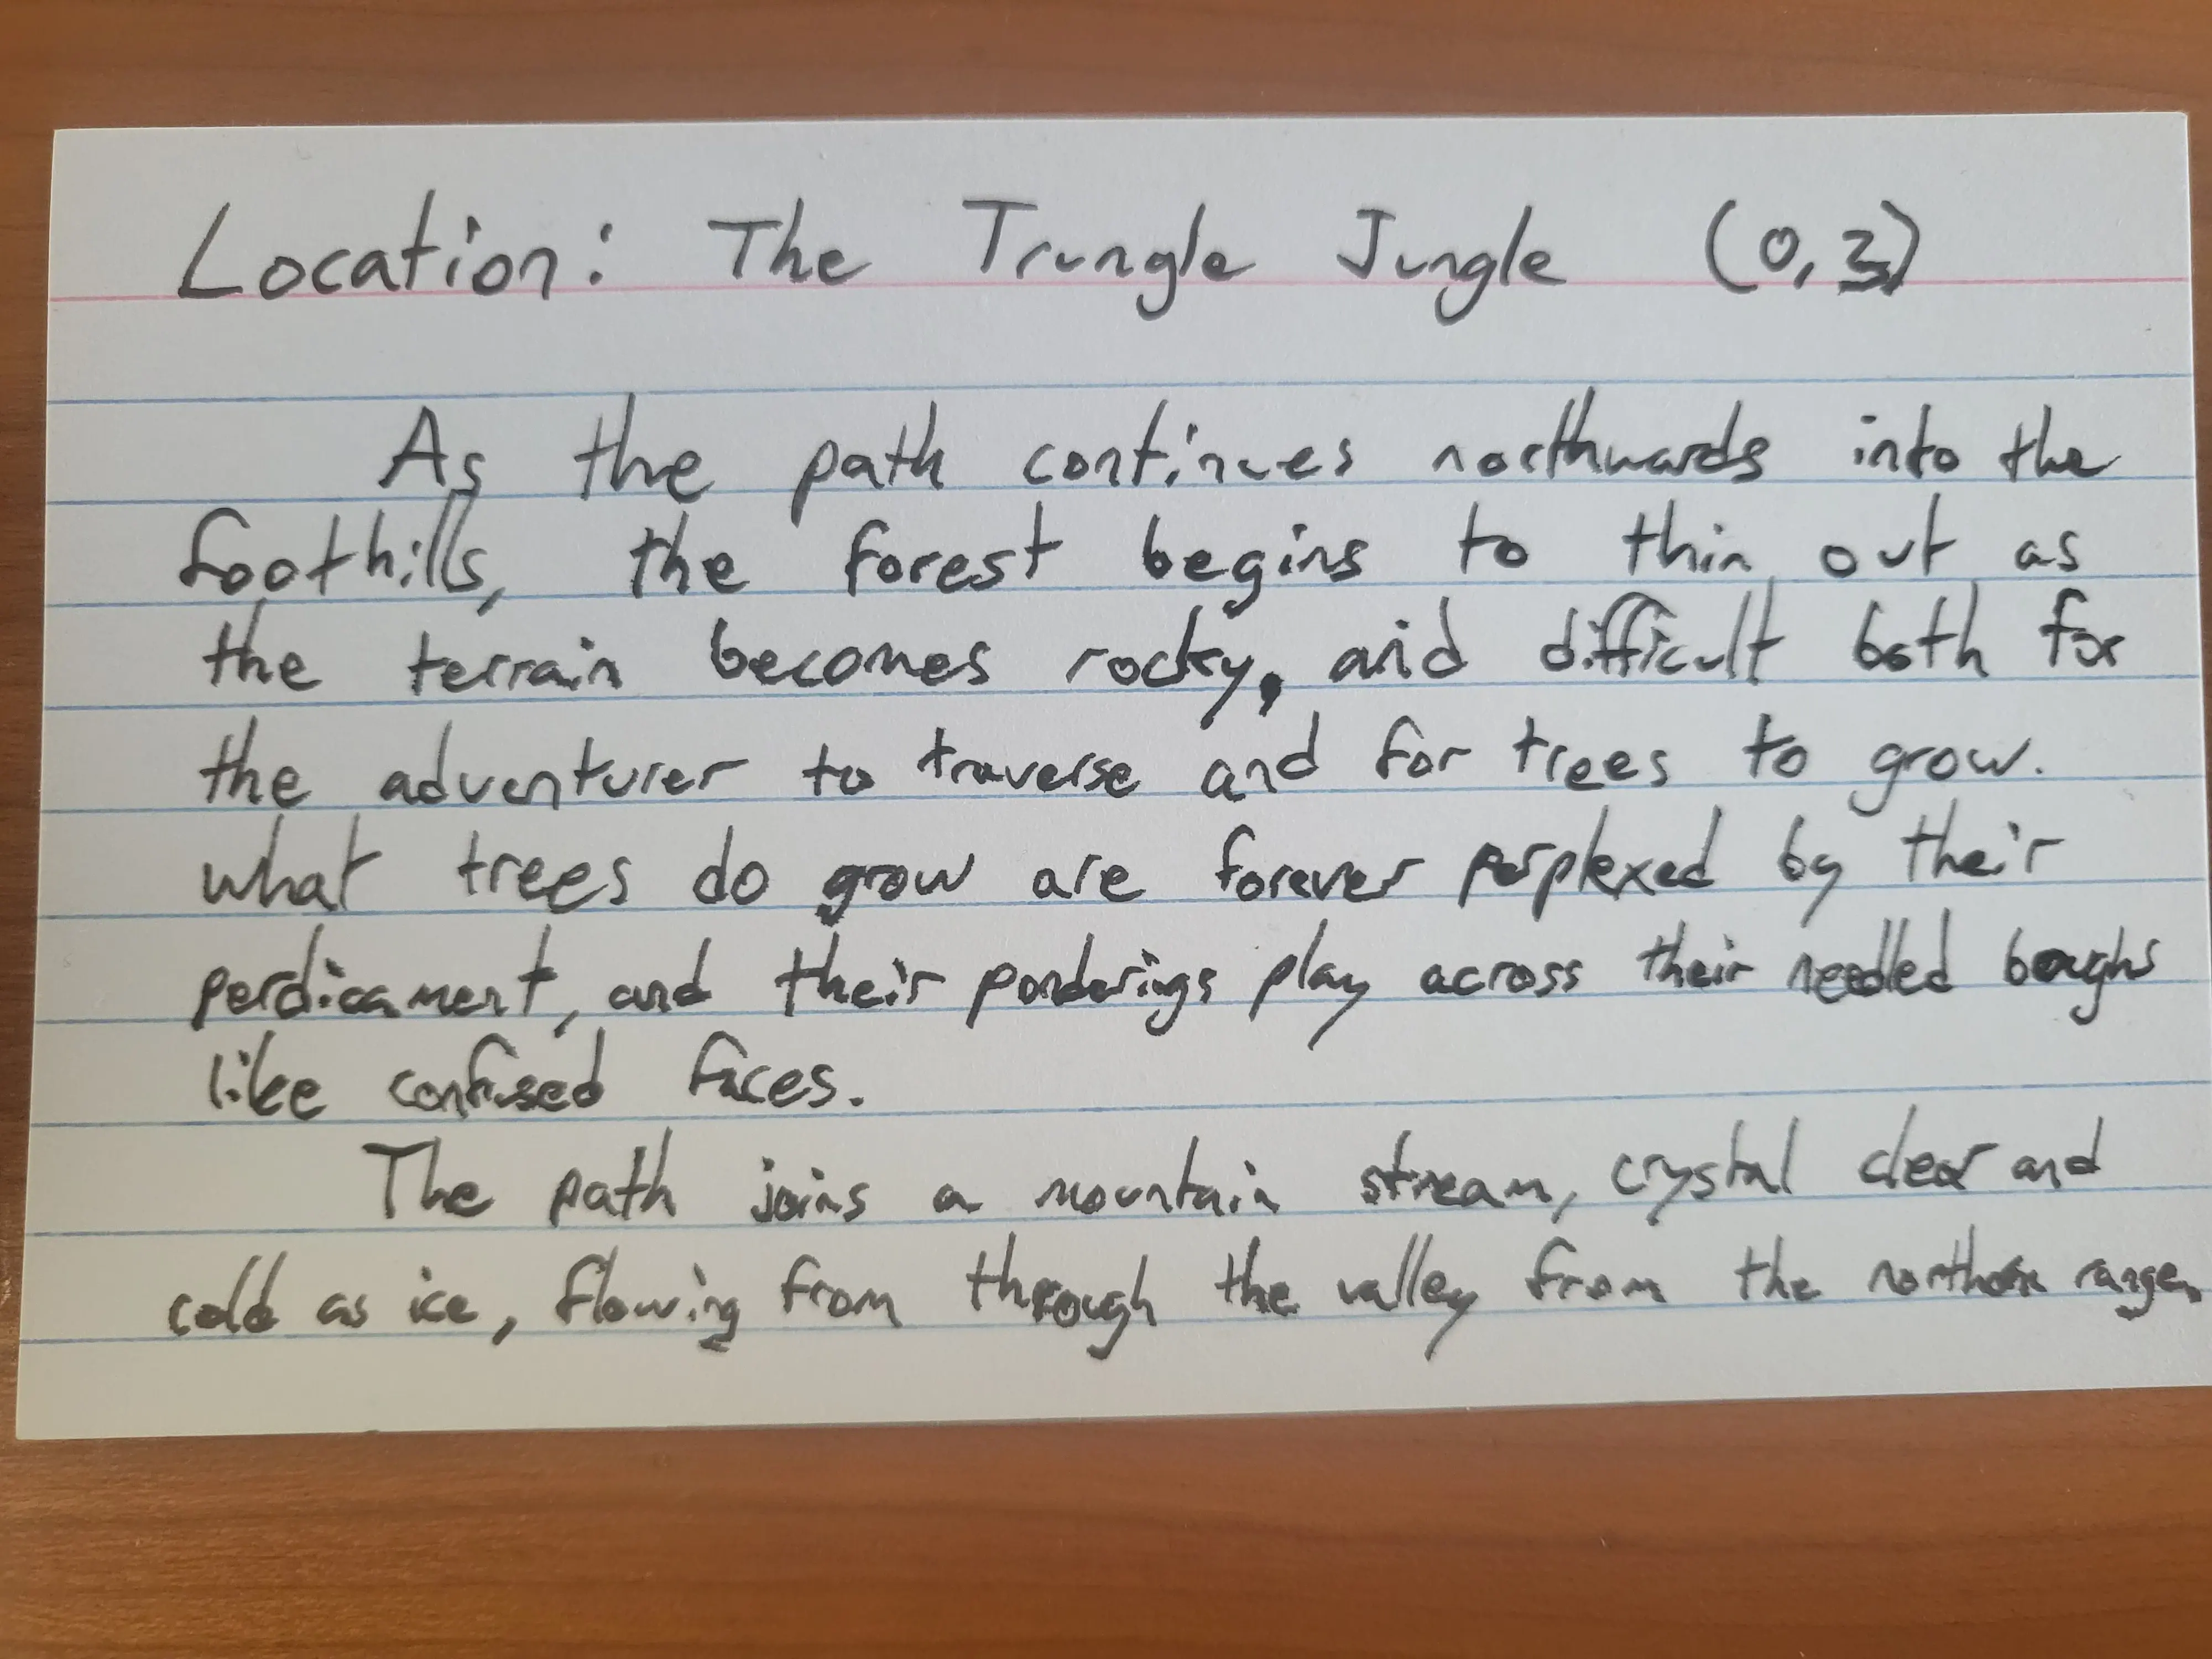 Location: The Trungle Jungle (0,3)
As the path continues northwards into the
foothills, the forest begins to thin out as
the terrain becomes rocky, and difficult both for
the adventurer to traverse and for trees to grow.
what trees do grow are forever perplexed by their
perdicament, and their ponderings play across their needled boughs
like confused faces.
The path joins a mountain stream, crystal clear and
cold as ice, flowing from through the valley from the northern range.